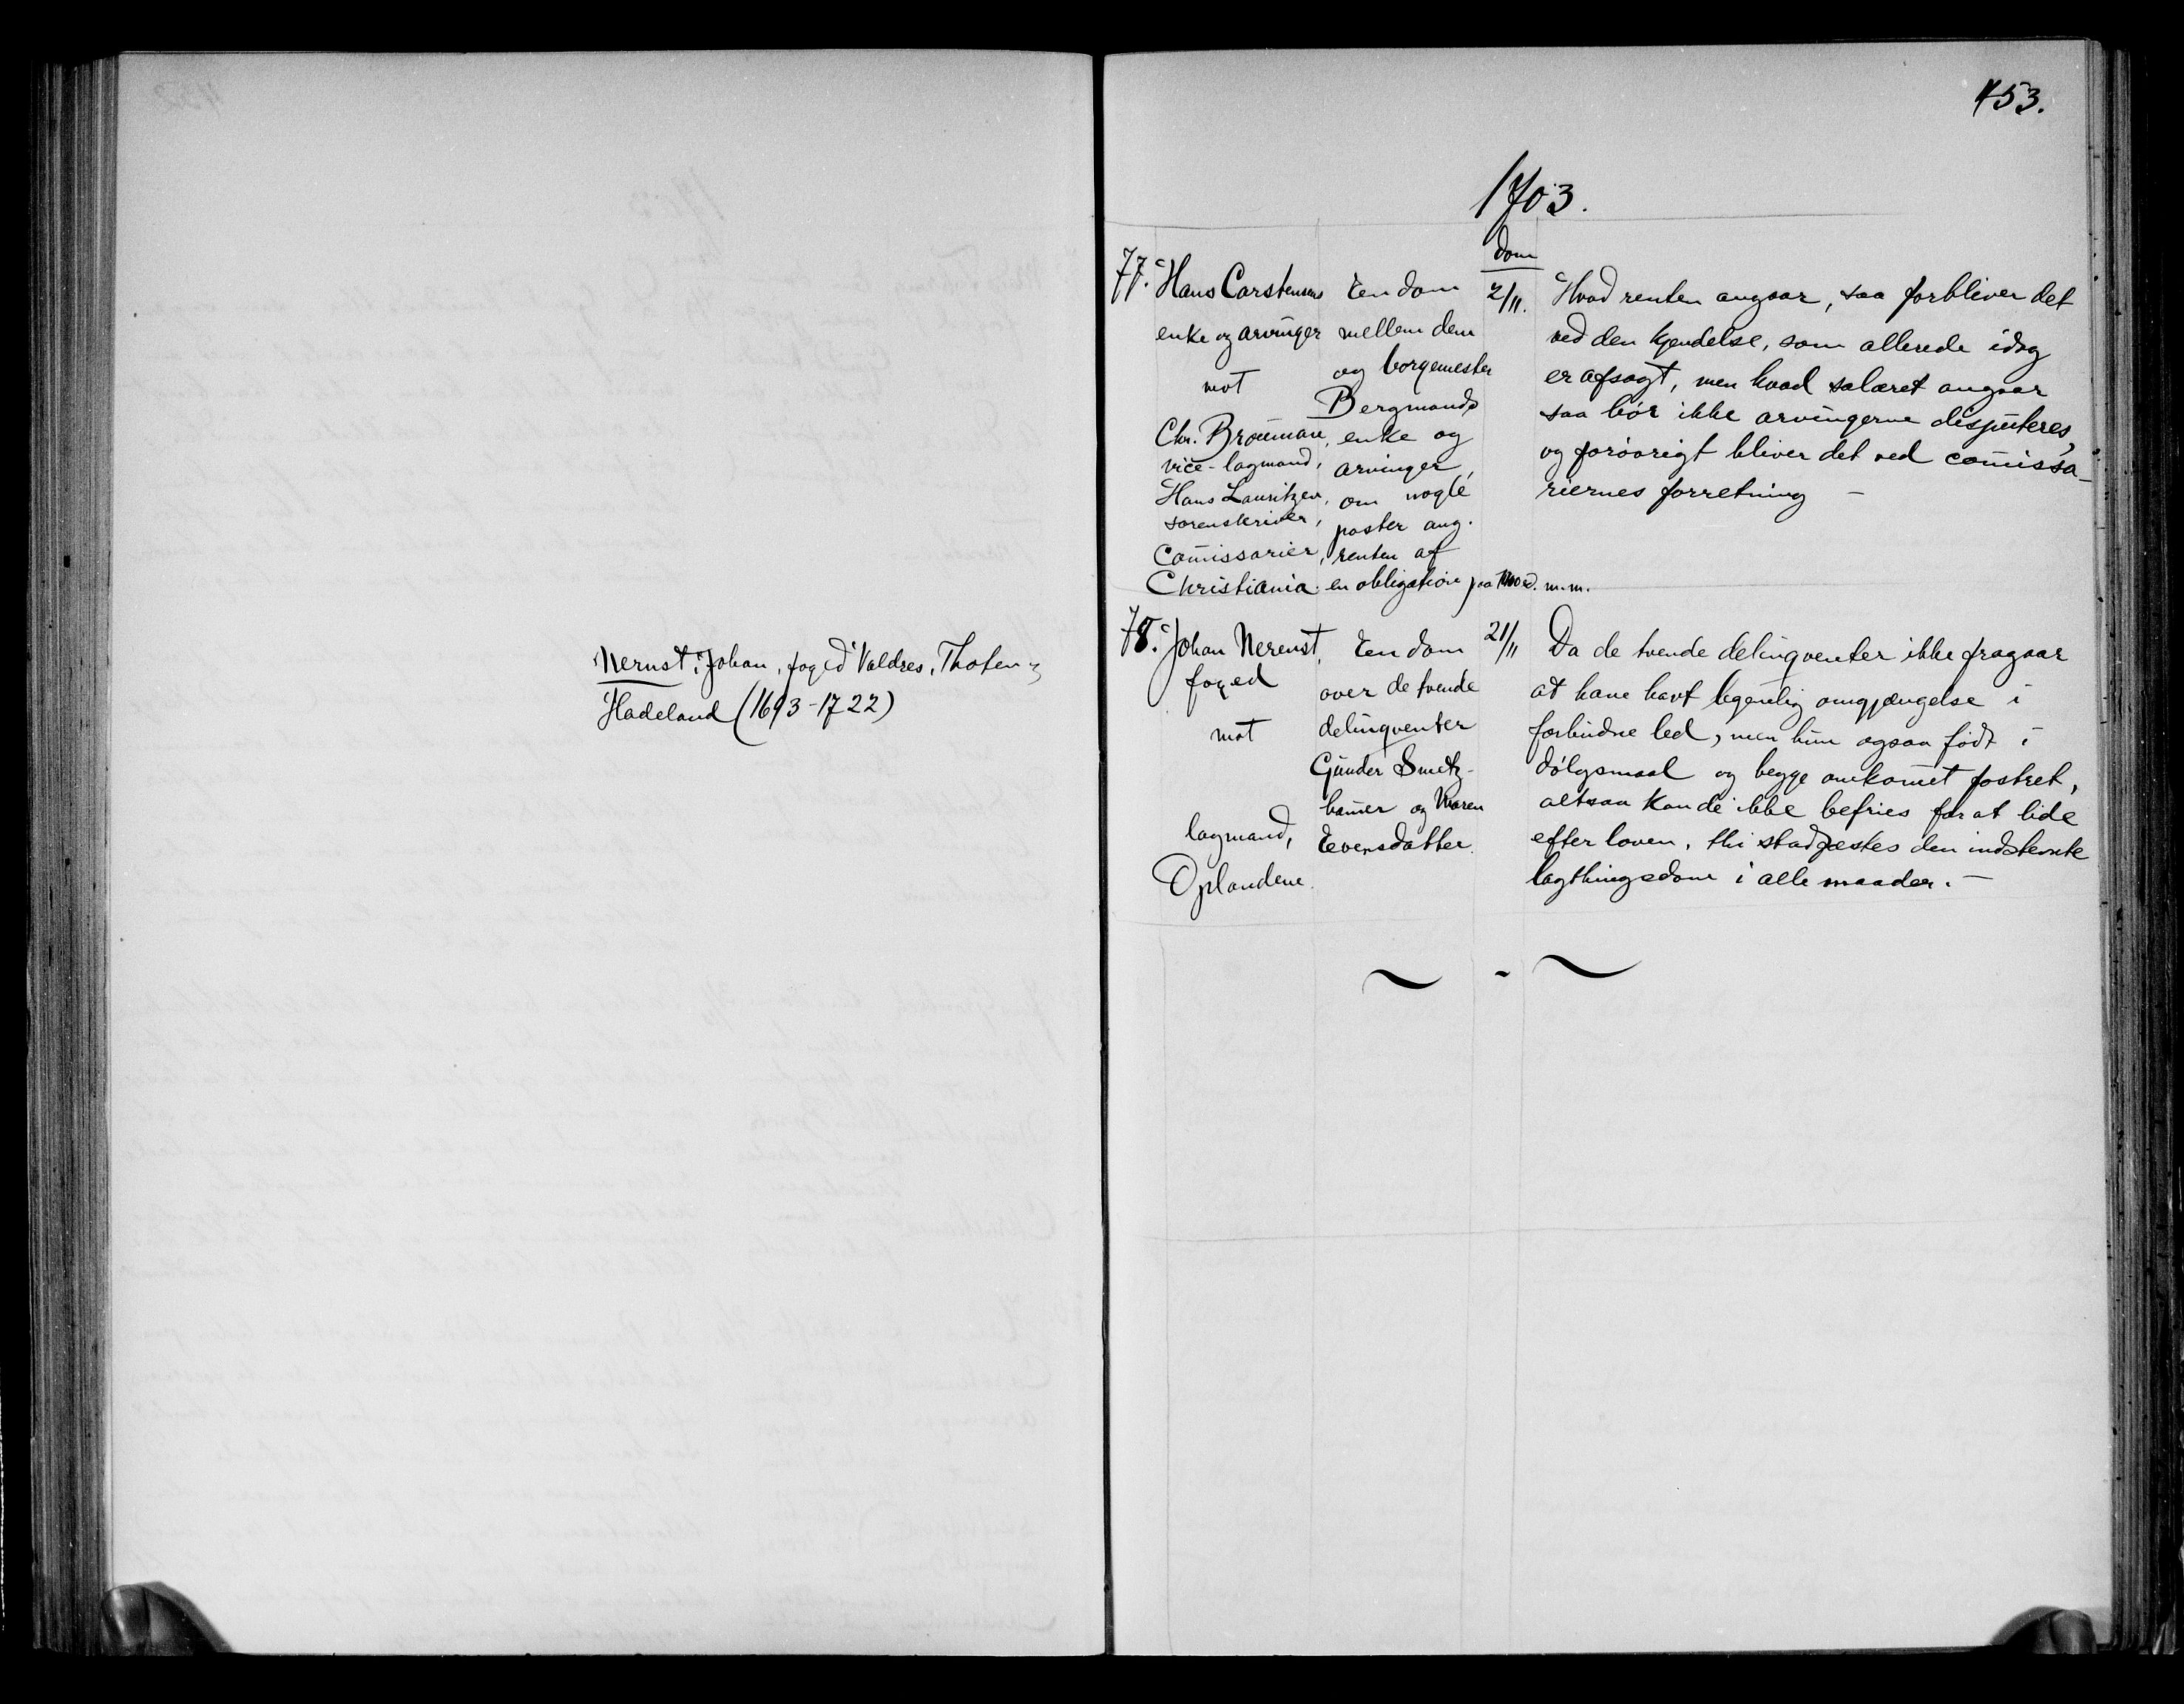 Nernst, Johan, foged Valdres, Thoten og
Hadeland (1693-1722)
453.
1703.
dom
77. Hans Carstensens
enke og arvinger
mot
Chr. Brouman,
vice-lagmand,
Hans Lauritzen,
sorenskriver,
Comissarier,
Christiania.
En dom
mellem dem
og borgemester
Bergmands
enke og
arvinger,
om nogle
poster ang.
renten af
en obligation paa rd. m.m.
2/11.
Hvad renten angaar, saa forbliver det
ved den kjendelse, som allerede idag
er afsagt, men hvad salæret angaar
saa bör ikke arvingerne disputeres,
og forövrigt bliver det ved comissa-
riernes forretning –
78. Johan Nerenst,
foged
mot
lagmand,
Oplandene.
En dom
over de tvende
delinqventer
Gunder Smetz-
hamer og Maren
Evensdatter.
21/11
Da de tvende delinqventer ikke fragaar
at have havt legemlig omgjængelse i
forbudne led, men hun ogsaa födt i
dölgsmaal og begge omkomet fostret,
altsaa kan de ikke befries for at lide
efter loven, thi stadfæstes den indstevnte
lagthingsdom i alle maader. –